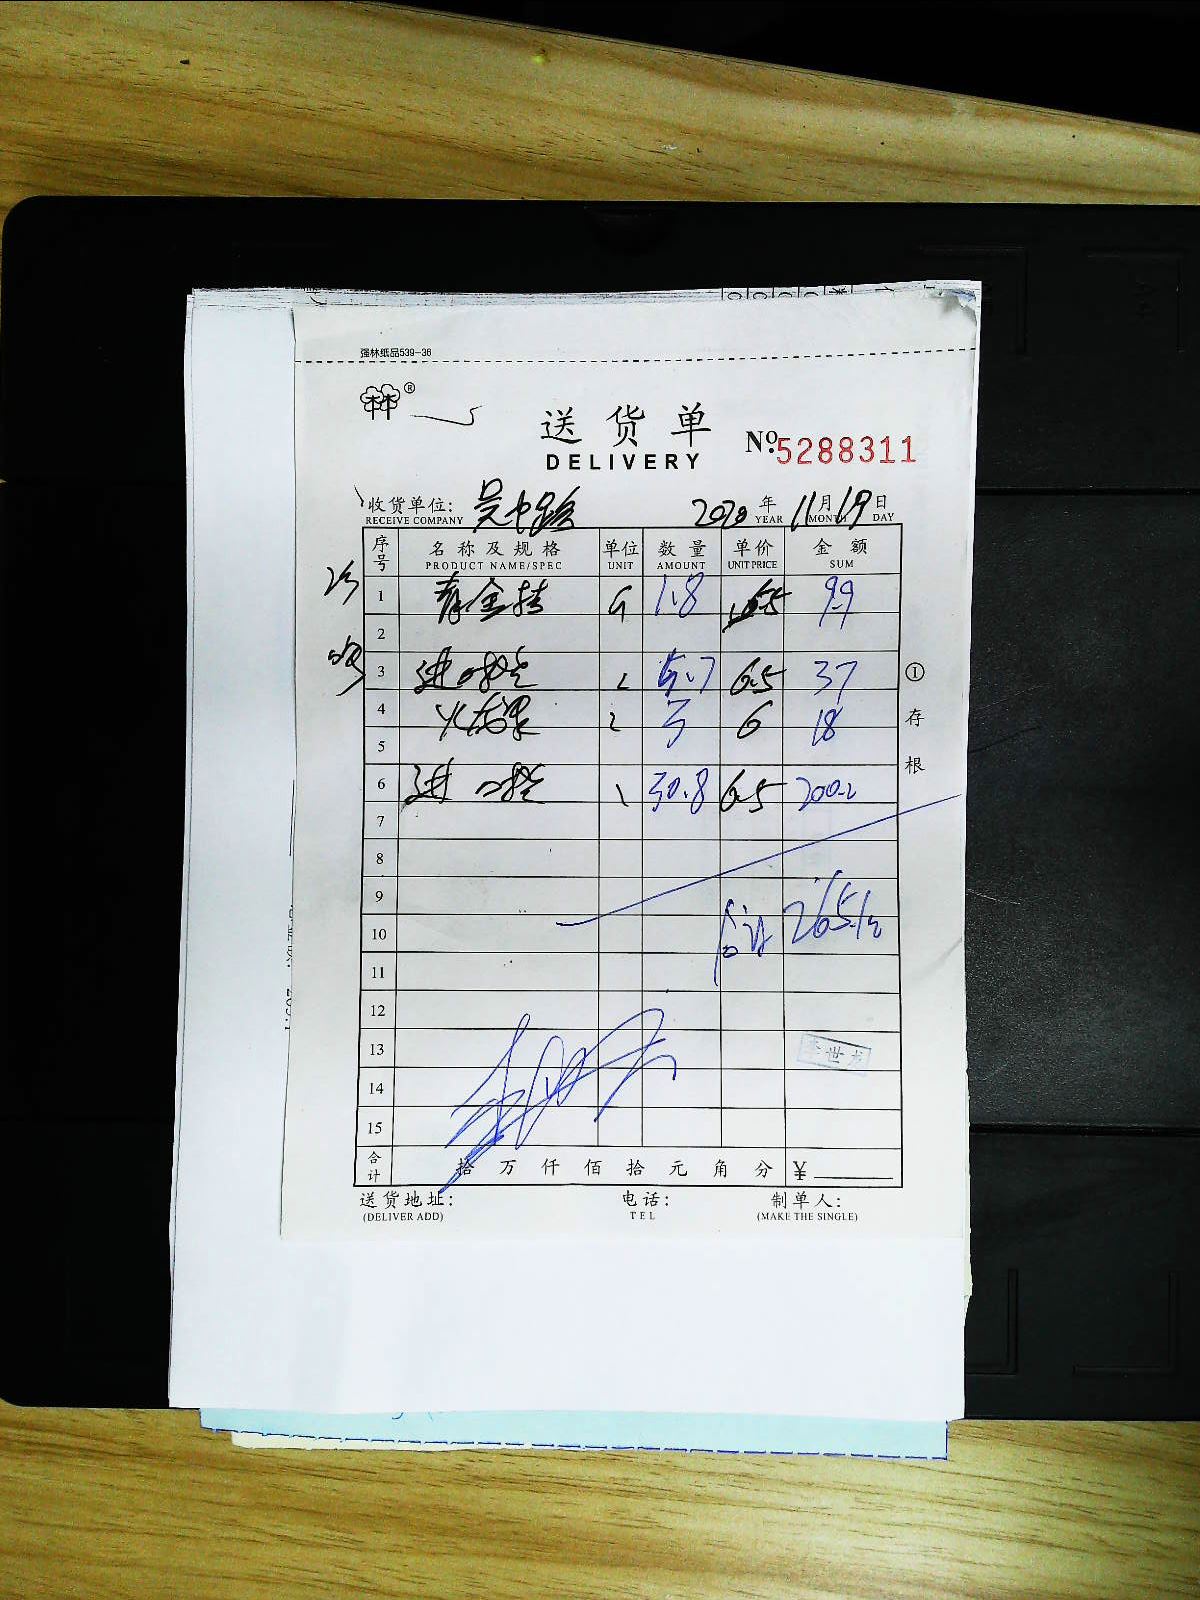 强林纸品539-36
林®
送货单
DELIVERY
No.5288311
收货单位: 吴中路 2020年11月19日
RECEIVE COMPANY YEAR MONTH DAY
序号 名称及规格 单位 数量 单价 金额
PRODUCT NAME/SPEC UNIT AMOUNT UNIT PRICE SUM
1 青金桔 G 1.8 5.5 9.9
2
3 进口橙 5.7 6.5 37
4 火龙果 3 6 18
5
6 进口橙 30.8 6.5 200.2
7
8
9
10 合计 265.1元
11
12
13 李世龙
14
15
合计 拾万仟佰拾元角分 ¥
送货地址: 电话: 制单人:
(DELIVER ADD) TEL (MAKE THE SINGLE)
①存根